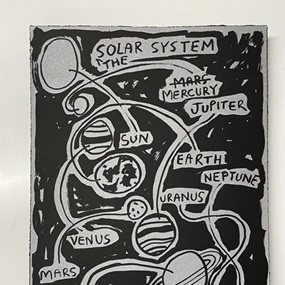 SOLAR SYSTEM
THE
MARS
MERCURY
JUPITER
SUN
EARTH
NEPTUNE
URANUS
VENUS
MARS